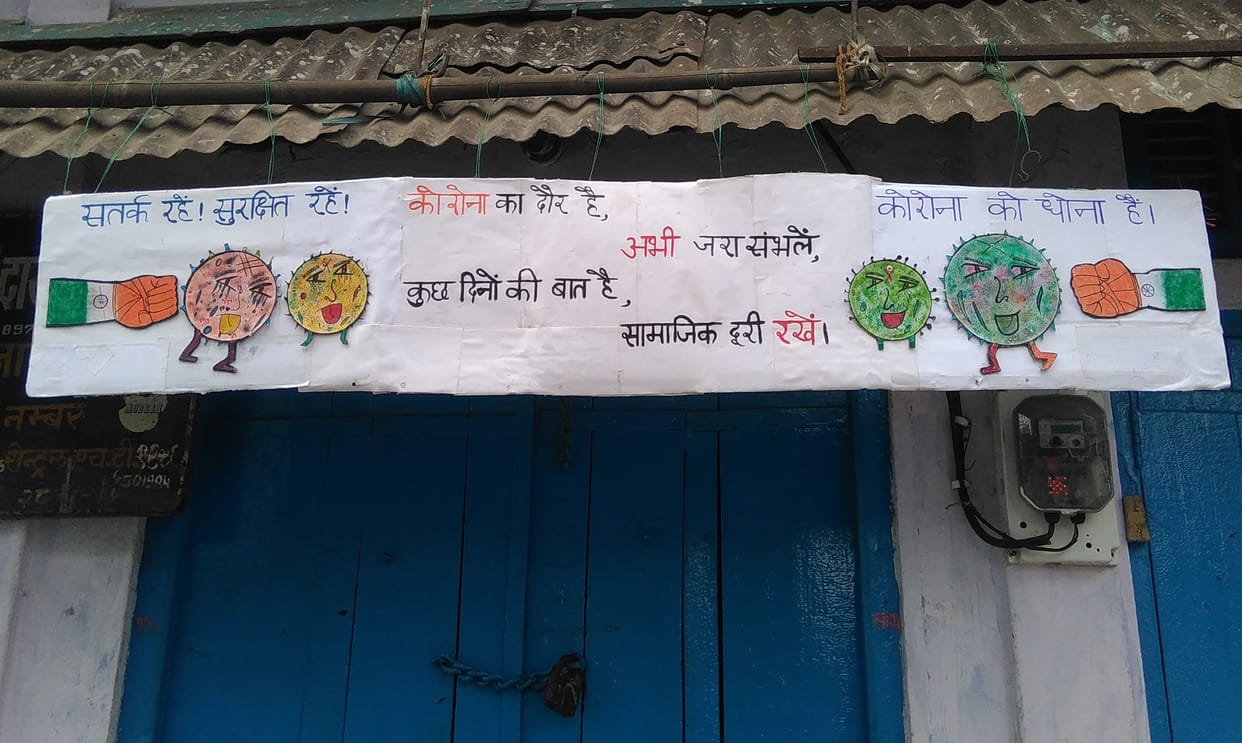 सतर्क रहें! सुरक्षित रहें!
कोरोना का दौर है,
अभी जरा संभलें,
कुछ दिनों की बात है,
सामाजिक दूरी रखें।
कोरोना को धोना है।
नम्बर